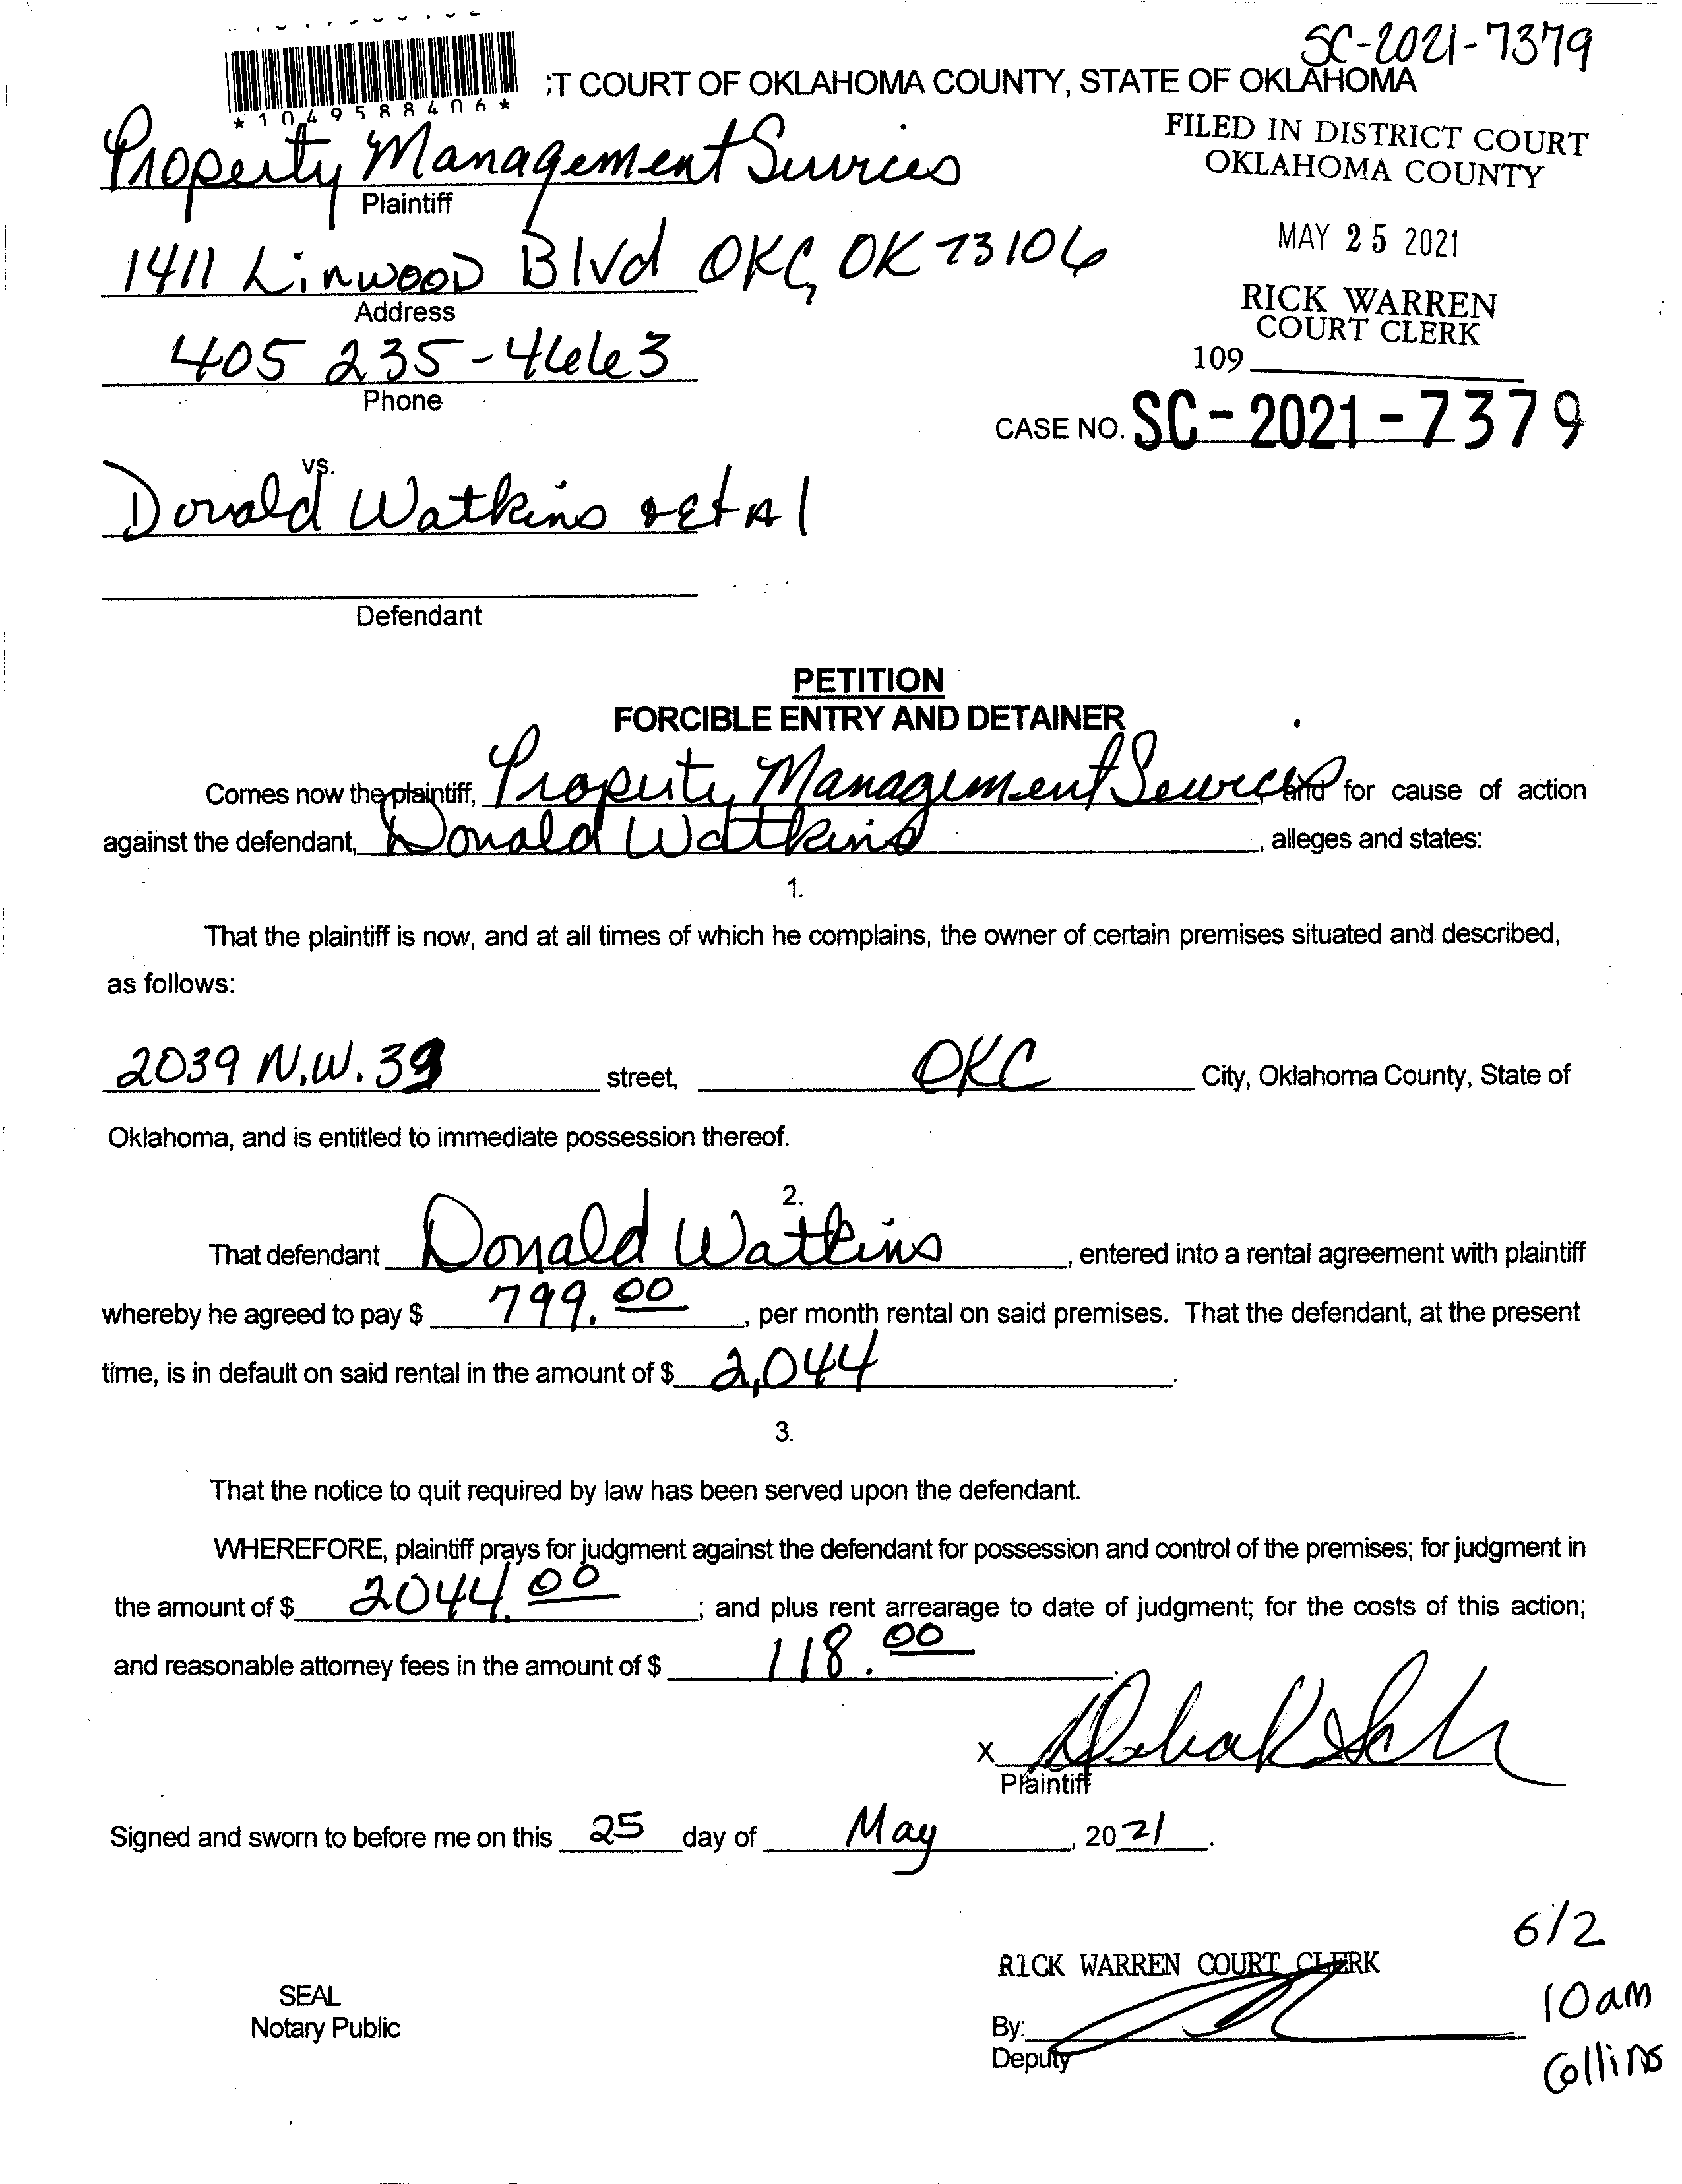 SC-2021-7379
*1049588406*
T COURT OF OKLAHOMA COUNTY, STATE OF OKLAHOMA
Property Management Services
Plaintiff
FILED IN DISTRICT COURT
OKLAHOMA COUNTY
MAY 25 2021
1411 Linwood Blvd OKC, OK 73106
Address
RICK WARREN
COURT CLERK
109
405 235-4663
Phone
CASE NO. SC-2021-7379
vs.
Donald Watkins et Al
Defendant
PETITION
FORCIBLE ENTRY AND DETAINER
Comes now the plaintiff, Property Management Services, and for cause of action
against the defendant, Donald Watkins, alleges and states:
1.
That the plaintiff is now, and at all times of which he complains, the owner of certain premises situated and described,
as follows:
2039 N.W. street, OKC City, Oklahoma County, State of
Oklahoma, and is entitled to immediate possession thereof.
2.
That defendant Donald Watkins, entered into a rental agreement with plaintiff
whereby he agreed to pay $ 799.00, per month rental on said premises. That the defendant, at the present
time, is in default on said rental in the amount of $ 2,044.
3.
That the notice to quit required by law has been served upon the defendant.
WHEREFORE, plaintiff prays for judgment against the defendant for possession and control of the premises; for judgment in
the amount of $ 2044.00; and plus rent arrearage to date of judgment; for the costs of this action;
and reasonable attorney fees in the amount of $ 118.00.
X
Plaintiff
Signed and sworn to before me on this 25 day of May, 2021.
6/2
RICK WARREN COURT CLERK
10am
SEAL
Notary Public
By:
Deputy
Collins